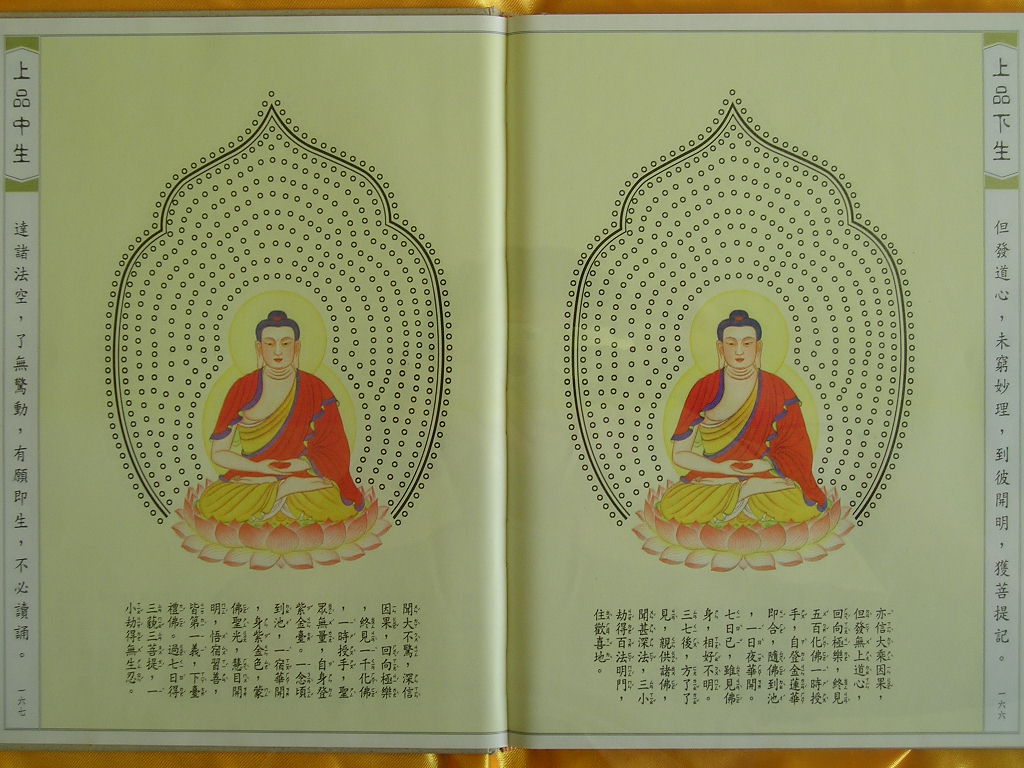 上品下生
但發道心，未窮妙理，到彼開明，獲菩提記。
一六六
亦信大乘因果，
但發無上道心，
回向極樂，終見
五百化佛一時授
手，自登金蓮華
即合，隨佛到池
，一日夜華開。
七日已，雖見佛
身，相好不明。
三七後，方了了
見，親供諸佛，
聞甚深法，三小
劫得百法明門，
住歡喜地。
聞大不驚，深信
因果，回向極樂
，終見一千化佛
，一時授手，聖
眾無量，自身登
紫金臺。一念頃
到池，一宿華開
，身紫金色，蒙
佛聖光，慧目開
明，悟宿習善，
皆第一義，下臺
禮佛。過七日得
三藐三菩提，一
小劫得無生忍。
上品中生
達諸法空，了無驚動，有願即生，不必讀誦。
一六七